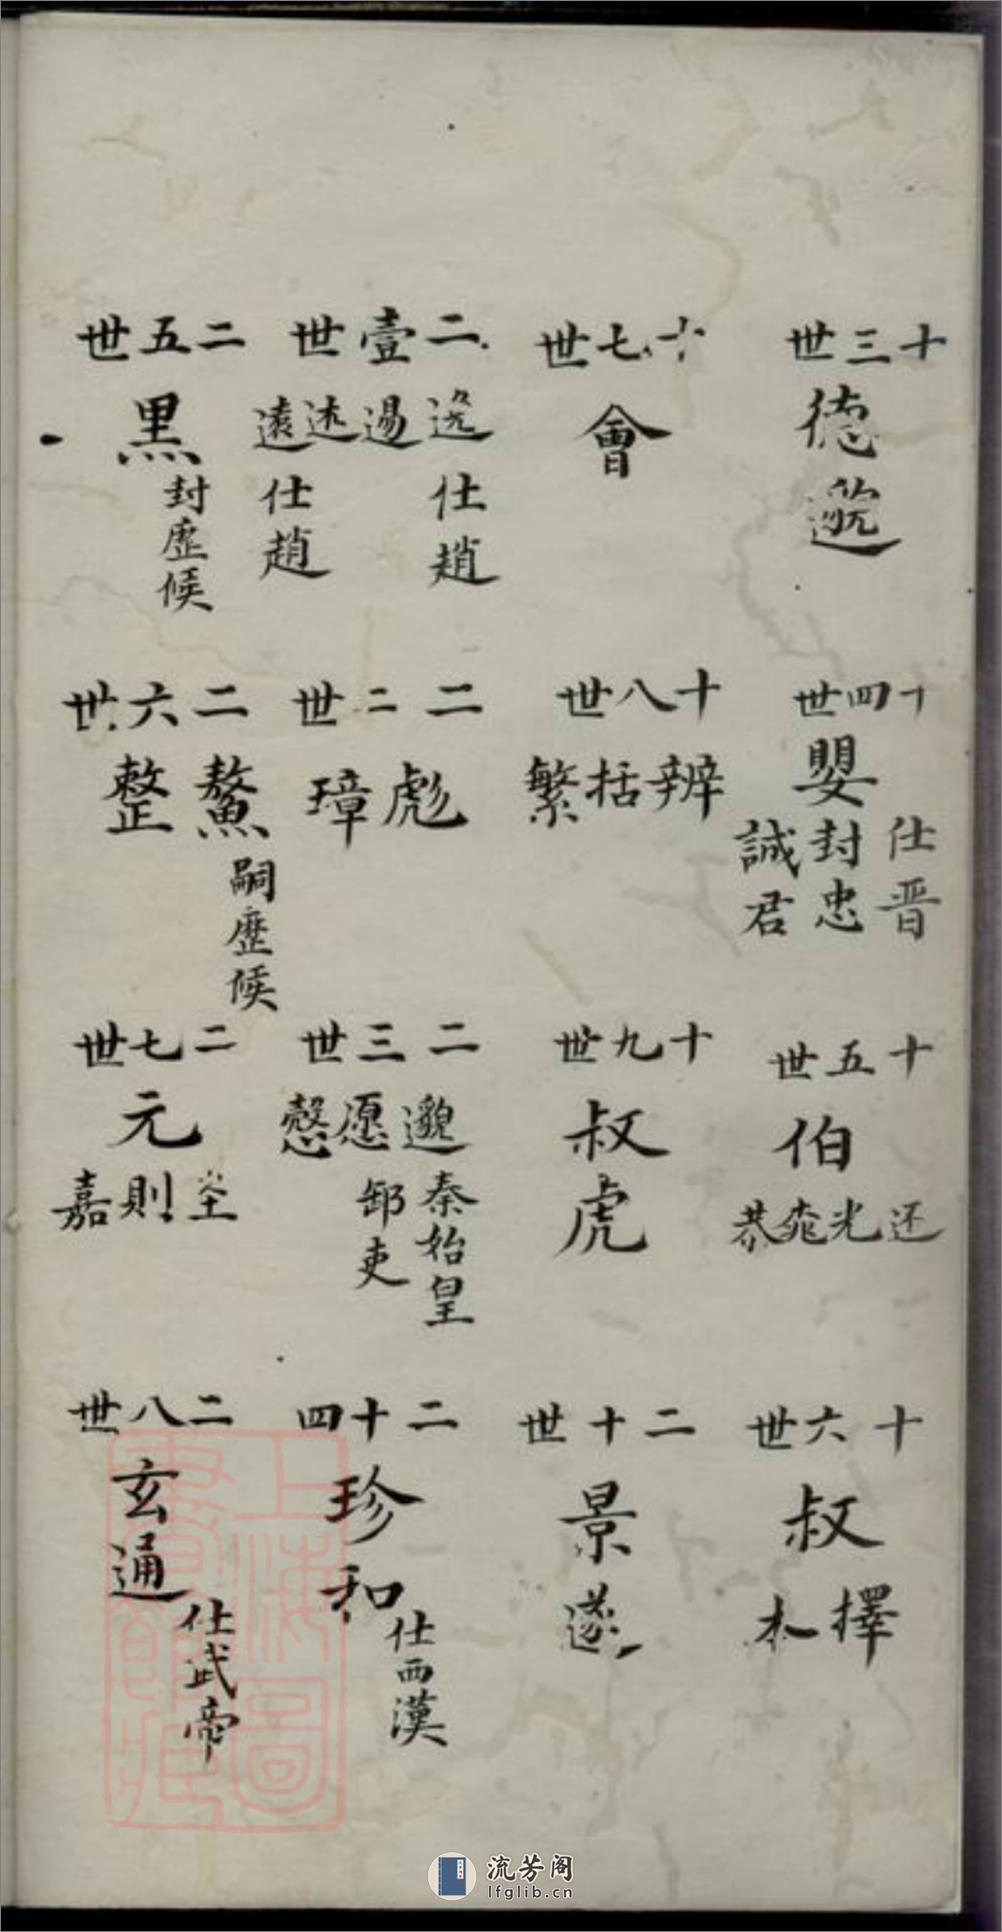 十三世
德
邈
十四世
嬰
仕晋
封忠
誠君
十五世
伯
还光恭
十六世
叔
擇木
十七世
會
十八世
辨括繁
十九世
叔虎
二十世
景遂
二壹世
逷逑遠
仕趙
仕趙
二二世
彪璋
二三世
邈愿慤
秦始皇
郎吏
二十四
珍和
仕西漢
二五世
黑
封歷候
二六世
鰲整
嗣歷候
二七世
元
則嘉
二八世
玄通
仕武帝
上海圖書館藏
流芳阁
lfglib.cn